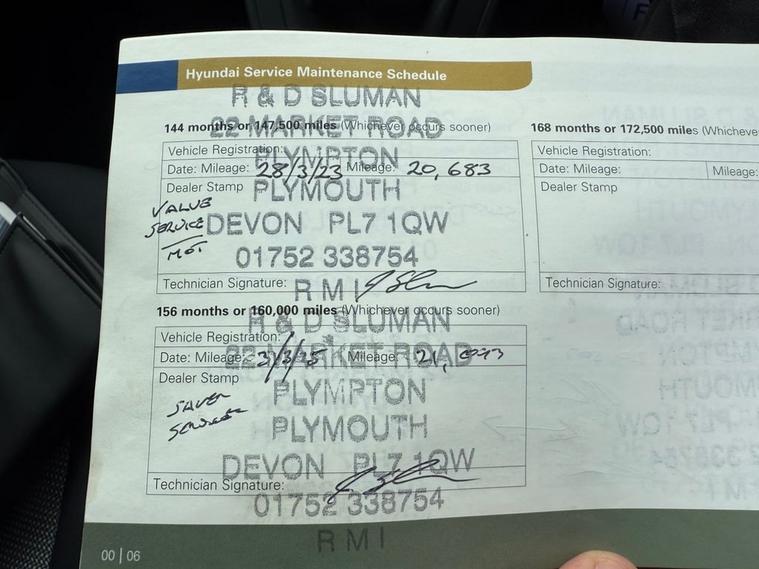 Hyundai Service Maintenance Schedule
R & D SLUMAN
22 MARKET ROAD
PLYMPTON
PLYMOUTH
DEVON PL7 1QW
01752 338754
RMI
144 months or 147,500 miles (Whichever occurs sooner)
Vehicle Registration:
Date: Mileage: 28/3/23 Mileage: 20,683
Dealer Stamp
VALUE
SERVICE
MOT
Technician Signature:
156 months or 160,000 miles (Whichever occurs sooner)
R & D SLUMAN
22 MARKET ROAD
PLYMPTON
PLYMOUTH
DEVON PL7 1QW
01752 338754
RMI
Vehicle Registration:
Date: Mileage: Mileage: 21,
Dealer Stamp
SAVER
SERVICE
Technician Signature:
168 months or 172,500 miles (Whicheve
Vehicle Registration:
Date: Mileage: Mileage:
Dealer Stamp
Technician Signature:
00 | 06